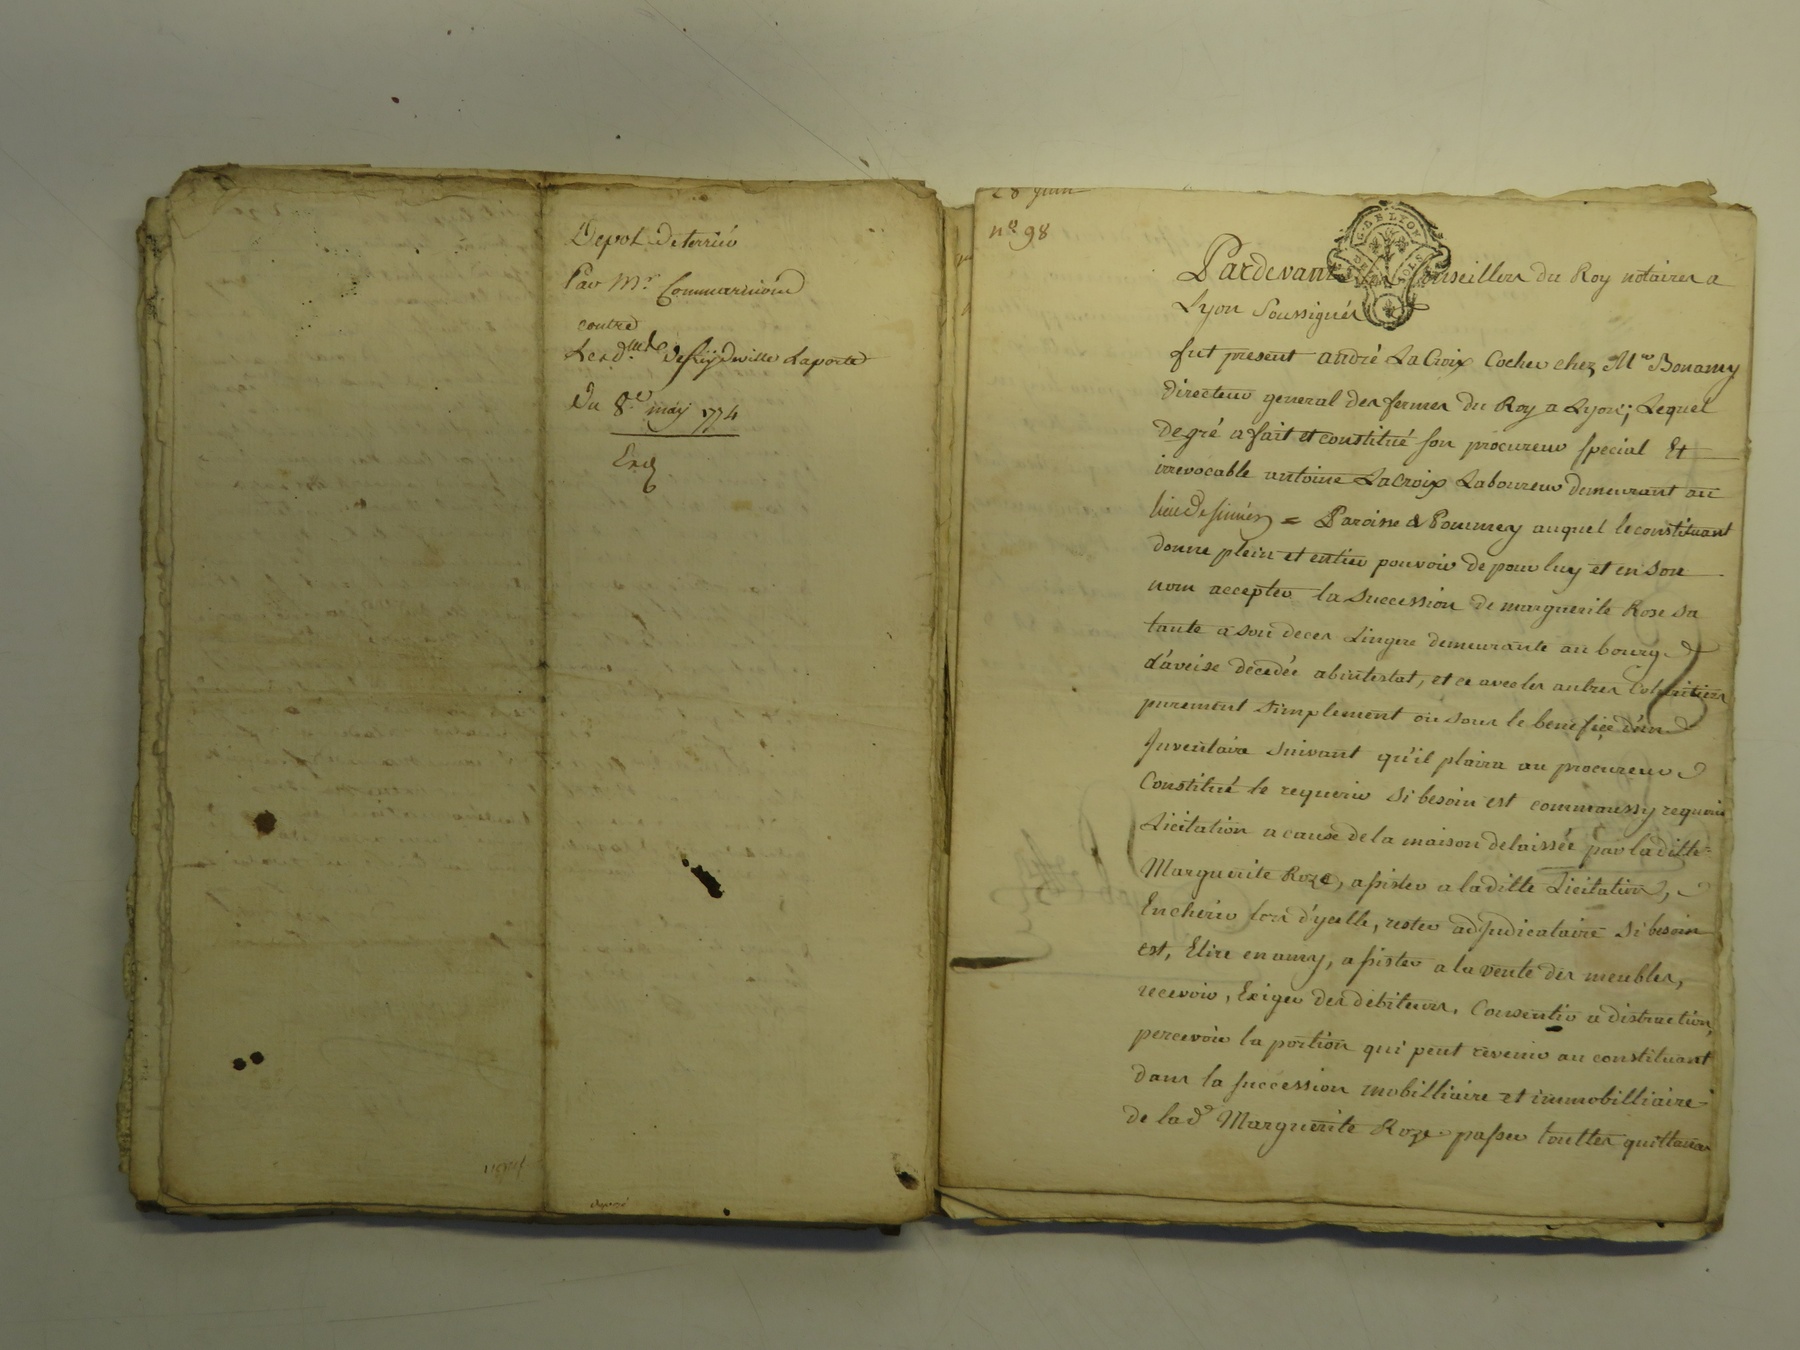 Depot de terrier
Par Mr. Commarmond
contre
Les d.
Du 8e may 1774
28 juin
no 98
Pardevant Conseillers du Roy notaires a
Lyon Soussignés
fut present andré LaCroix Cocher chez Mr Bonamy
directeur general des fermes du Roy a Lyon; Lequel
de gré a fait et constitué son procureur special Et
irrevocable antoine LaCroix Laboureur demeurant au
lieu de = Paroisse de Pommey auquel le constituant
donne plein et entier pouvoir de pour luy et en son
nom accepter la succession de marguerite Rose sa
tante a son deces Lingere demeurante au bourg
d'aveise decedée abintestat, et ce avec les autres Coheritiers
purement simplement ou sous le benefice d'un
Inventaire suivant qu'il plaira au procureur
Constitué le requerir si besoin est comm'aussy requerir
Licitation a cause de la maison delaissée par laditte
Marguerite Roze, assister a laditte Licitation,
Encherir lors d'ycelle, rester adjudicataire si besoin
est, Elire en amy, assister a la vente des meubles,
recevoir, Exiger des debiteurs, Consentir a distraction,
percevoir la portion qui peut revenir au constituant
dans la succession mobilliaire et immobilliaire
de lad. Marguerite Roze passer touttes quittances